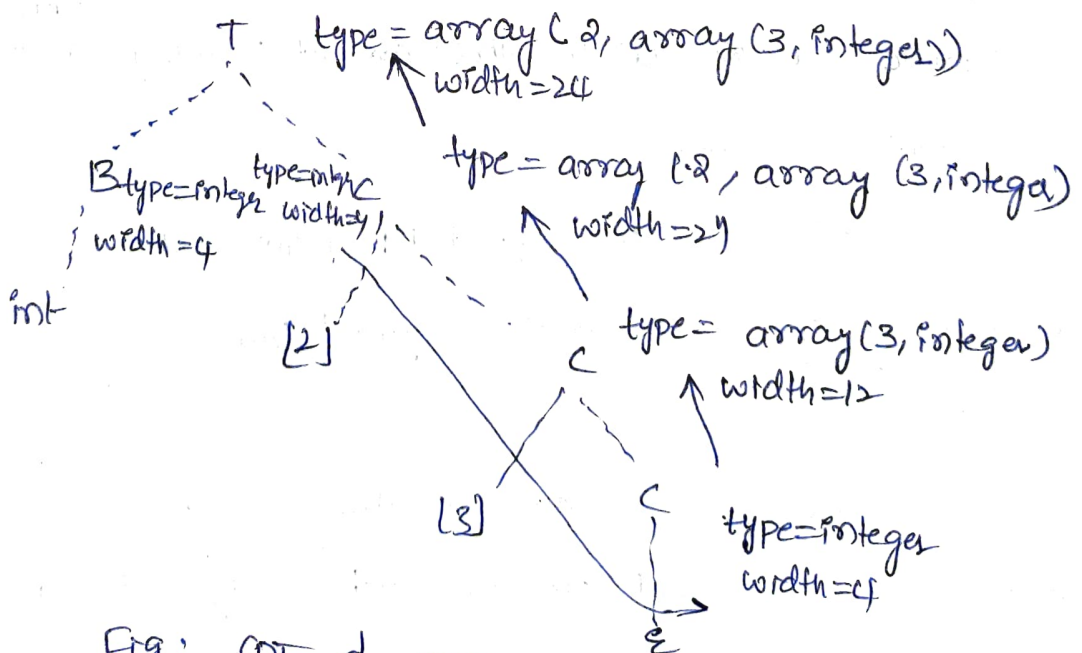 T type = array (2, array (3, integer))
width=24
B type=integer type=integer C type = array (2, array (3, integer)
width=4 width=4 width=24
int
[2] C type = array (3, integer)
width=12
[3] C type=integer
width=4
Fig: ε